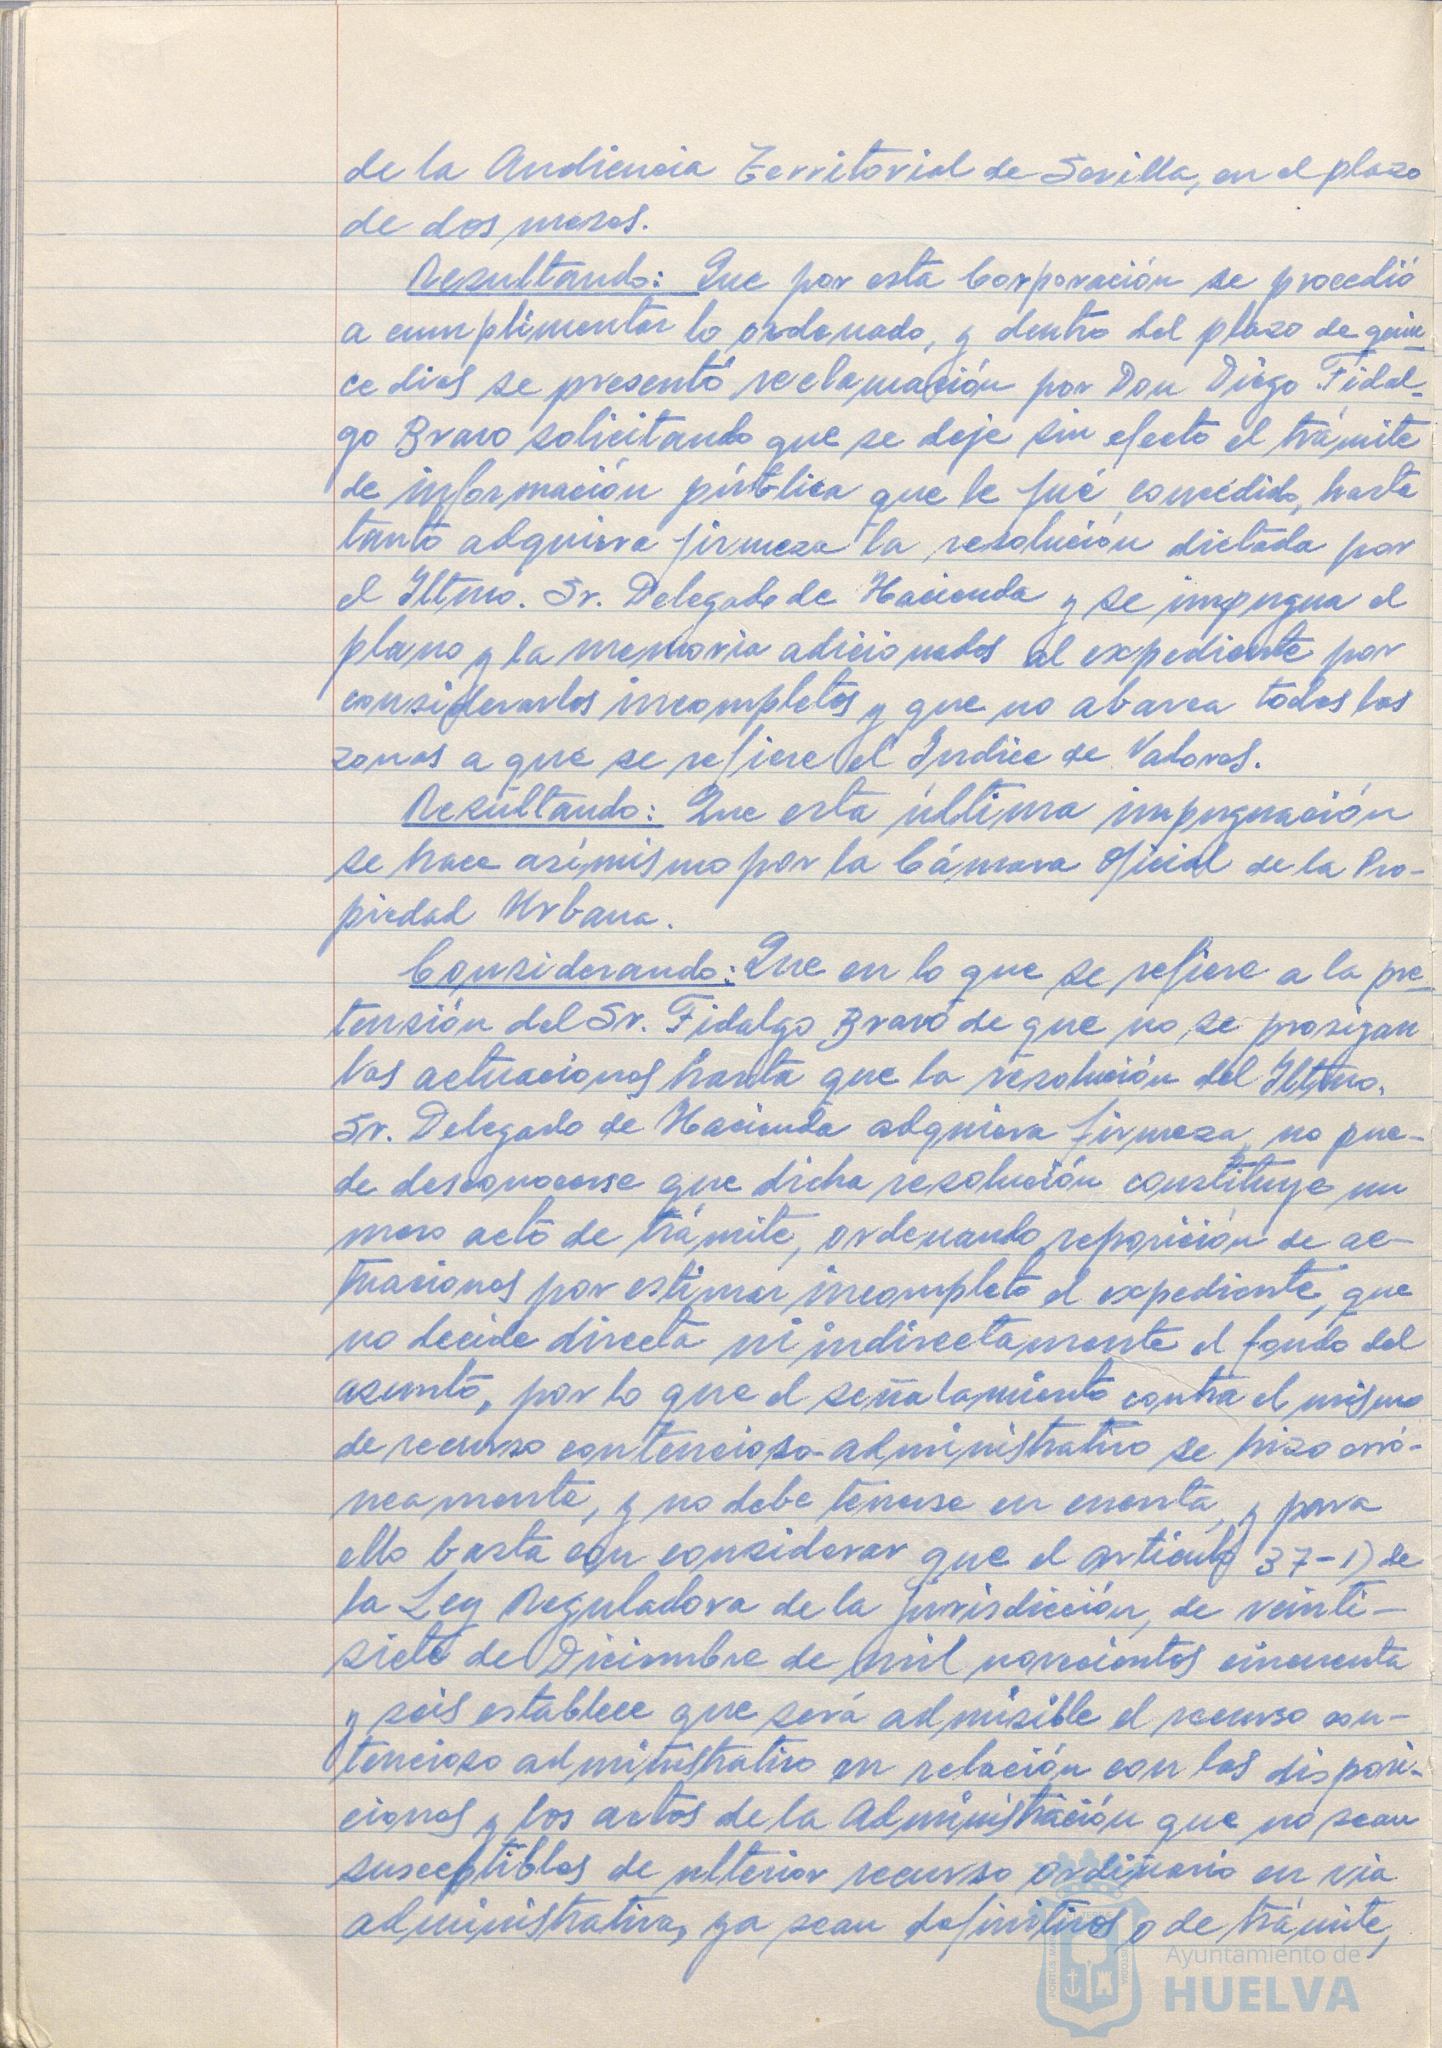 de la Audiencia Territorial de Sevilla, en el plazo
de dos meses.
Resultando: Que por esta Corporación se procedió
a cumplimentar lo ordenado, y dentro del plazo de quin-
ce dias se presentó reclamación por Don Diego Fidal-
go Bravo solicitando que se deje sin efecto el trámite
de información pública que le fué concedido, hasta
tanto adquiera firmeza la resolución dictada por
el Iltmo. Sr. Delegado de Hacienda y se impugna el
plano y la memoria adicionados al expediente por
considerarlos incompletos y que no abarca todas las
zonas a que se refiere el Indice de Valores.
Resultando: Que esta última impugnación
se hace asímismo por la Cámara Oficial de la Pro-
piedad Urbana.
Considerando: Que en lo que se refiere a la pre-
tensión del Sr. Fidalgo Bravo de que no se prosigan
las actuaciones hasta que la resolución del Iltmo.
Sr. Delegado de Hacienda adquiera firmeza, no pue-
de desconocerse que dicha resolución constituye un
mero acto de trámite, ordenando reposición de ac-
tuaciones por estimar incompleto el expediente, que
no decide directa ni indirectamente el fondo del
asunto, por lo que el señalamiento contra el mismo
de recurso contencioso-administrativo se hizo erró-
neamente, y no debe tenerse en cuenta, y para
ello basta con considerar que el artículo 37-1) de
la Ley Reguladora de la jurisdicción, de veinti-
siete de Diciembre de mil novecientos cincuenta
y seis establece que será admisible el recurso con-
tencioso administrativo en relación con las disposi-
ciones y los actos de la Administración que no sean
susceptibles de ulterior recurso ordinario en via
administrativa, ya sean definitivos o de trámite,
Ayuntamiento de
HUELVA